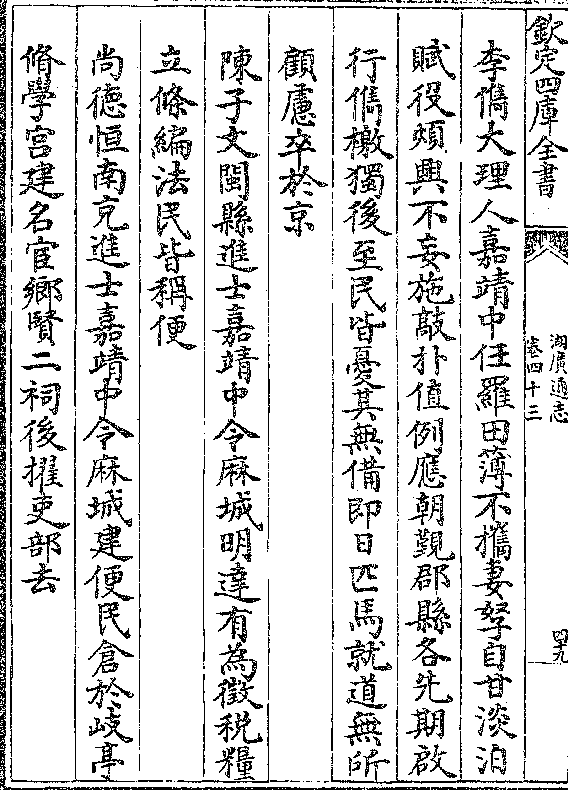 欽定四庫全書
湖廣通志
卷四十三
四九
李儁大理人嘉靖中任羅田簿不攜妻孥自甘淡泊
賦役頻興不妄施敲扑值例應朝覲郡縣各先期啟
行儁檄獨後至民皆憂其無備即日匹馬就道無所
顧慮卒於京
陳子文閩縣進士嘉靖中令麻城明達有為徵税糧
立條編法民皆稱便
尚德恒南充進士嘉靖中令麻城建便民倉於岐亭
脩學宮建名宦鄉賢二祠後擢吏部去